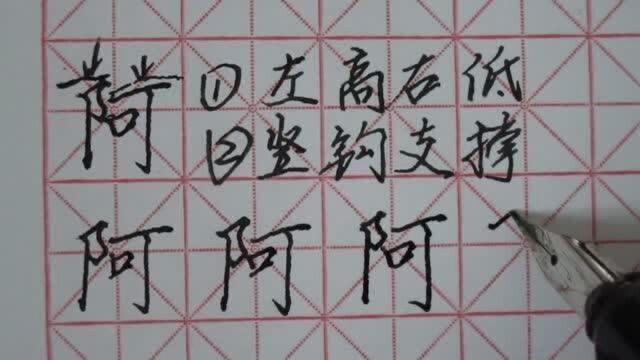 阿①左高右低
②竖钩支撑
阿阿阿